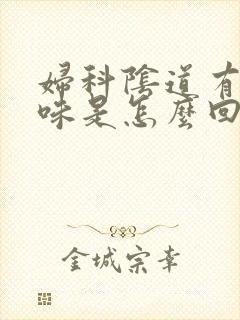 婦科陰道有
味是怎麼回
金城宗幸